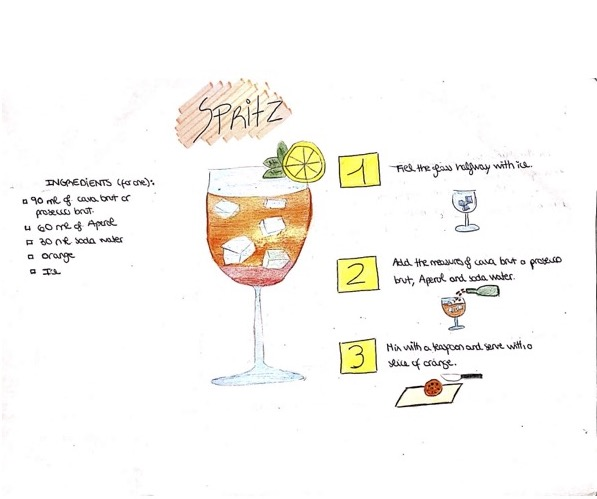 SPRITZ
INGREDIENTS (for one):
90 ml of cava brut or
prosecco brut.
60 ml of Aperol
30 ml soda water
Orange
Ice
1
Fill the glass halfway with ice.
2
Add the measure of cava brut o prosecco
brut, Aperol and soda water.
3
Mix with a teaspoon and serve with a
slice of orange.